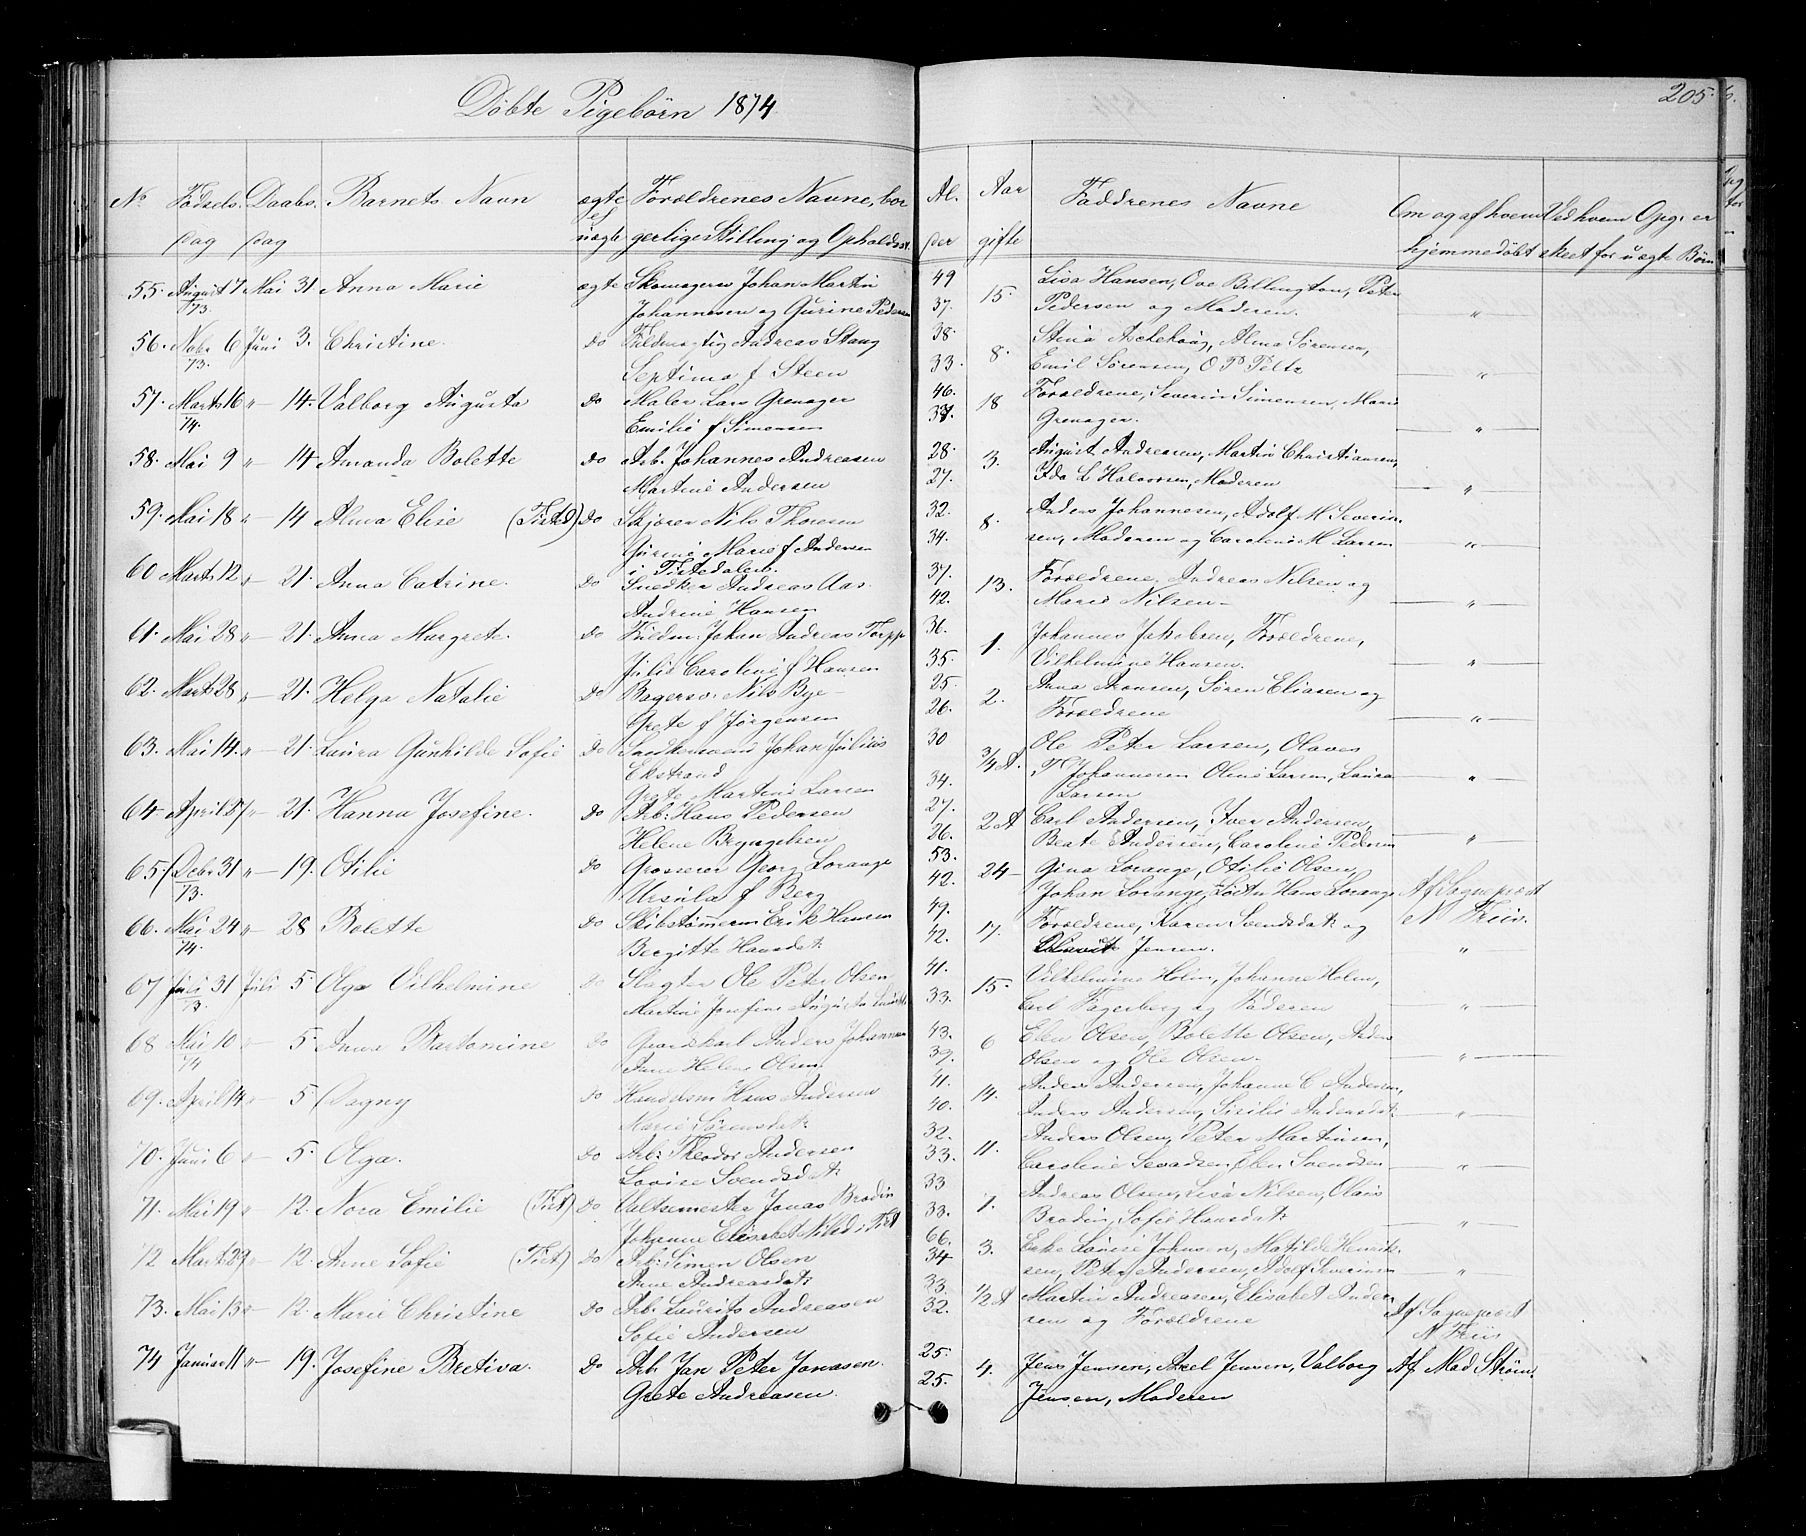 Døbte Pigebørn 1874.
205.
No Fødsels Daabs. Barnets Navn ægte Forældrenes Navne, bor Al. Aar Faddrenes Navne Om og af hvem Ved hvem Opg. er
dag dag uægte gerlige Stilling og Opholdsst. der gifte hjemmedøbt skeet for uægte Børn
55. August 7 Mai 31 Anna Marie ægte Skomager Johan Martin 49 Lisa Hansen, Ove Billington, Peter
73. Johannesen og Gurine Pedersen 37. 15. Pedersen og Moderen. "
56. Nobr 6 Juni 3. Christine. do Fuldmægtig Andreas Stang 38. Stina Aschehoug, Alma Sørensen,
73. Septima f Steen 33. 8. Emil Sørensen, O P Peltz "
57. Marts 16 " 14. Valborg Augusta do Maler Lars Grenager 46. 18 Forældrene, Severin Simensen, Marie
74. Emilie f Simensen 37. Grenager. "
58. Mai 9 " 14 Amanda Bolette do Arb. Johannes Andreasen 28. 3. August Andreasen, Martin Christiansen,
Martine Andersen 27. Ida L Halvorsen, Moderen "
59. Mai 18 " 14 Alma Elise (Tistd) do Skjører Nils Thoresen 32. 8. Anders Johannesen, Adolf M Severin
Gurine Marie f Andersen 34. sen, Moderen og Caroline M Larsen "
i Tistedalen.
60 Marts 12 " 21. Anna Catrine. do Snedker Andreas Aas. 37. 13. Forældrene, Andreas Nilsen og
Andrine Hansen 42. Marie Nilsen "
61. Mai 28 " 21. Anna Margrete. do Fuldm. Johan Andreas Torpp 36. 1. Johannes Jakobsen, Forældrene,
Julie Caroline f Hansen 35. Vilhelmine Hansen. "
62. Marts 28 " 21. Helga Natalie do Bagersv. Nils Bye 25. 2. Anna Aronsen, Søren Eliasen og
Grete f Jørgensen 26. Forældrene "
63. Mai 14. " 21. Laura Gunhilde Sofie do Snedkersvend Johan Julius 30 3/4 A. Ole Peter Larsen, Olaves
Ekstrand Johannesen Oline Larsen, Laura "
Grete Martine Larsen 34. Larsen
64 April 27 " 21. Hanna Josefine. do Arb. Hans Pedersen 27. 2 A Carl Andersen, Iver Andersen,
Helene Bryngelsen 26. Beate Andersen, Caroline Pedersen "
65. Decbr 31 " 19. Otilie do Grosserer Georg Lorange 53. 24 Gina Lorange, Otilie Olsen,
73. Ursula f Berg 42. Johan Lorange, Hans Lorange Af Sognepræst
66. Mai 24 " 28 Bolette do Skibstømerm Erik Hansen 49. 17. Forældrene, Karen Svendsdat og N Friis.
74. Bergitte Hansdat 42. Jensen. "
67 Juli 31 Juli 5. Olga Vilhelmine do Slagter Ole Peter Olsen 41. 15. Vilhelmine Holm, Johanne Holm,
73. Martine Josefine Augusta 33. Carl Fagerberg og Faderen "
68 Mai 10 " 5. Anna Bartomine do Gaardskarl Anders Johannesen 43. 6 Elen Olsen, Bolette Olsen, Anders
74 Anne Helene Olsen 39. Olsen og Ole Olsen. "
69. April 14 " 5 Dagny do Handelsm Hans Andersen 41. 14. Anders Andersen, Johanne C Andersen,
Marie Sørensdat. 40. Anders Andersen, Sicilie Andersdat. "
70. Juni 6 " 5. Olga. do Arb. Theodor Andersen 32. 11. Anders Olsen, Peter Martinsen,
Lovise Svendsdat. 33. Caroline Elen Svendsen "
71. Mai 19 " 12. Nora Emilie (Tist) do Valtsemester Jonas Brodin 33 1. Andreas Olsen, Lisa Nilsen, Olaus
Johanne Elisabet Nilsd i Tist 33. Brodin, Sofie Hansdat "
72 Marts 29 " 12. Anne Sofie (Tist) do Arb. Simen Olsen 66. 3. Louise Johnsen, Matilde Henrik
Anne Andreasdat. 34 sen, Peter Andersen, Adolf Severinsen "
73. Mai 13 " 12. Marie Christine do Arb. Laurits Andreasen 23. 1/2 A Martin Andreasen, Elisabet Ander
Sofie Andersen 32. sen og Forældrene Af Sognepræst
N Friis
74 Januar 11 " 19. Josefine Bretiva. do Arb. Jan Peter Jonasen. 25. 4. Jens Jensen, Axel Jensen, Valborg Af Mad Strøm.
Grete Andreasen. 25. Jensen, Moderen